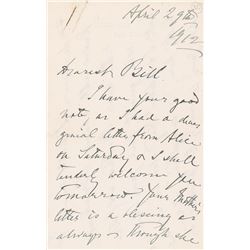 April 29th
1912
Dearest Bill
I have your good
note, as I had a dear
genial letter from Alice
on Saturday, & I shall
tenderly welcome you
tomorrow. Your Mother's
letter is a blessing as
always - though she